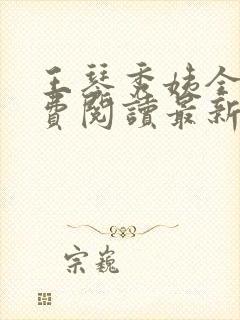 王琴秀姊全
費閱讀最新
宗巍